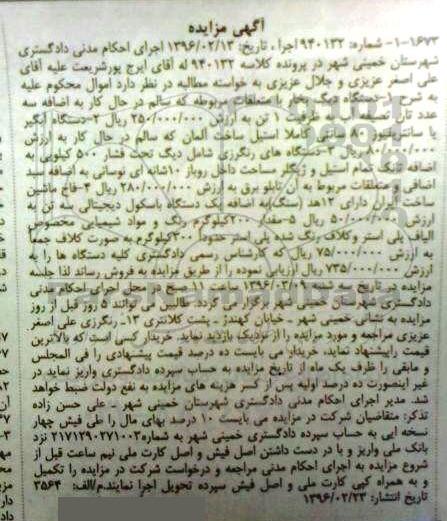 آگهی مزایده
۱-۱۶۷۳- شماره: ۹۴۰۱۳۲ اجرا، تاریخ: ۱۳۹۶/۰۲/۱۳ اجرای احکام مدنی دادگستری
شهرستان خمینی شهر در پرونده کلاسه ۹۴۰۱۳۲ له آقای ایرج پورشریعت علیه آقای
علی اصغر عزیزی و جلال عزیزی به خواسته مطالبه در نظر دارد اموال محکوم علیه
به شرح ۱-دستگاه دیگ بخار با متعلقات مربوطه که سالم در حال کار به اضافه سه
عدد تانک تصفیه ظرفیت ۱ تن به ارزش ۲۵۰/۰۰۰/۰۰۰ ریال ۲-دستگاه آبگیر
یا سانتریفیوژ ۸۰ سانتی کاملا استیل ساخت آلمان که سالم در حال کار به ارزش
۸۰/۰۰۰/۰۰۰ ریال ۳-دستگاه های رنگرزی شامل دیگ تحت فشار ۵۰۰ کیلویی به
اضافه تانک تمام استیل و ژیگلر مساحت داخل روباز ۱۰شانه ای نوسانی به اضافه سبد
اضافی و متعلقات مربوط به آن تابلو برق به ارزش ۲۸۰/۰۰۰/۰۰۰ ریال ۴-فاخ ماشین
ساخت ایران دارای ۱۲هد (سنگ) به اضافه یک دستگاه باسکول دیجیتالی سه تن به
ارزش ۵۰/۰۰۰/۰۰۰ ریال ۵-مقدار ۲۰۰کیلوگرم رنگ و مواد شیمیایی مخصوص
الیاف پلی استر وکلاف رنگ شده پلی استر حدوداً ۳۰۰کیلوگرم به صورت کلاف جمعاً
به ارزش ۷۵/۰۰۰/۰۰۰ ریال که کارشناس رسمی دادگستری کلیه دستگاه ها را به
ارزش ۷۳۵/۰۰۰/۰۰۰ ریال ارزیابی نموده را از طریق مزایده به فروش رساند لذا جلسه
مزایده در تاریخ سه شنبه ۱۳۹۶/۰۳/۰۹ ساعت ۱۱ صبح در محل اجرای احکام مدنی
دادگستری شهرستان خمینی شهر برگزار می گردد. طالبین می توانند ۵ روز قبل از روز
مزایده به نشانی خمینی شهر - خیابان کهندژ - پشت کلانتری ۱۳- رنگرزی علی اصغر
عزیزی مراجعه و مورد مزایده را از نزدیک بازدید نماید. خریدار کسی است که بالاترین
قیمت راپیشنهاد نماید، خریدار می بایست ده درصد قیمت پیشنهادی را فی المجلس
و مابقی را ظرف یک ماه از تاریخ مزایده به حساب سپرده دادگستری واریز نماید در
غیر اینصورت ده درصد اولیه پس از کسر هزینه های مزایده به نفع دولت ضبط خواهد
شد. مدیر اجرای احکام مدنی دادگستری شهرستان خمینی شهر - علی حسن زاده
تذکر: متقاضیان شرکت در مزایده می بایست ۱۰ درصد بهای مال را طی فیش چهار
نسخه ایی به حساب سپرده دادگستری خمینی شهر به شماره ۲۱۷۱۲۹۰۲۷۱۰۰۳ نزد
بانک ملی واریز و با در دست داشتن اصل فیش و اصل کارت ملی نیم ساعت قبل از
شروع مزایده به اجرای احکام مدنی مراجعه و درخواست شرکت در مزایده را تکمیل
و به همراه کپی کارت ملی و اصل فیش سپرده تحویل اجرا نمایند.م/الف: ۳۵۶۴
تاریخ انتشار: ۱۳۹۶/۰۲/۲۳